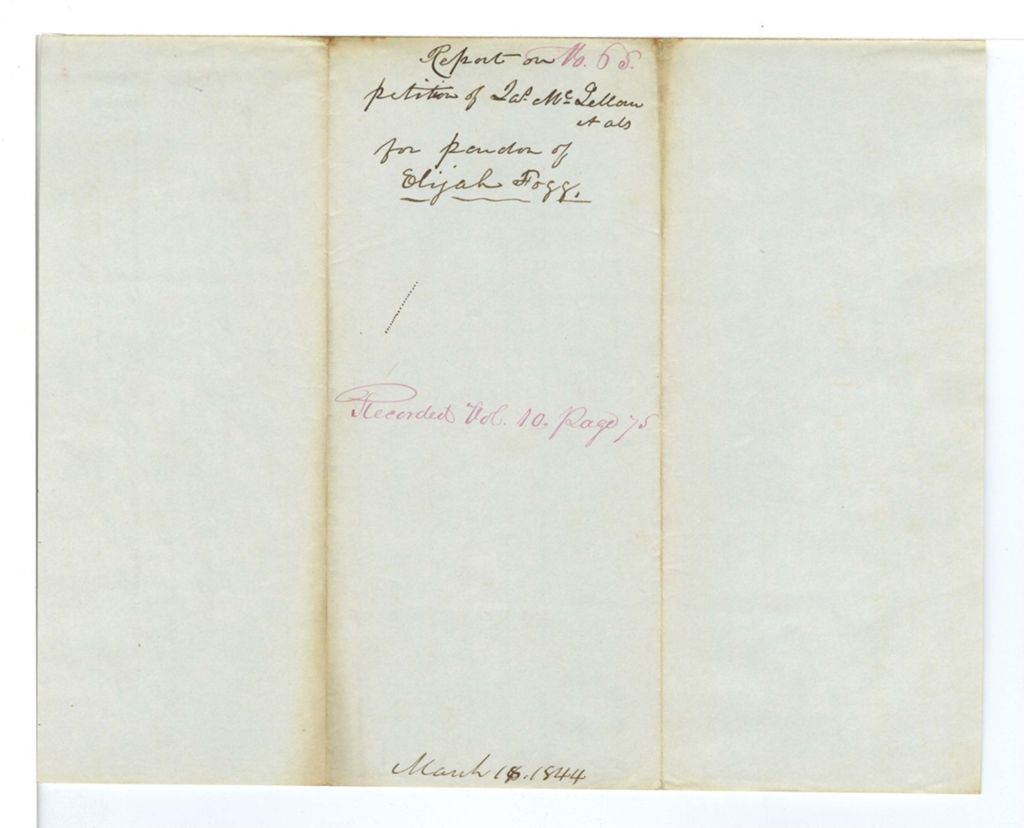 Report on No. 65.
petition of Jas. Mc. Lellan
et als
for pardon of
Elijah Fogg.
Recorded Vol. 10. Page 75
March 18. 1844